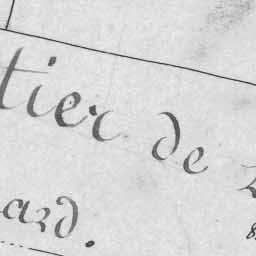 tier de
ard.